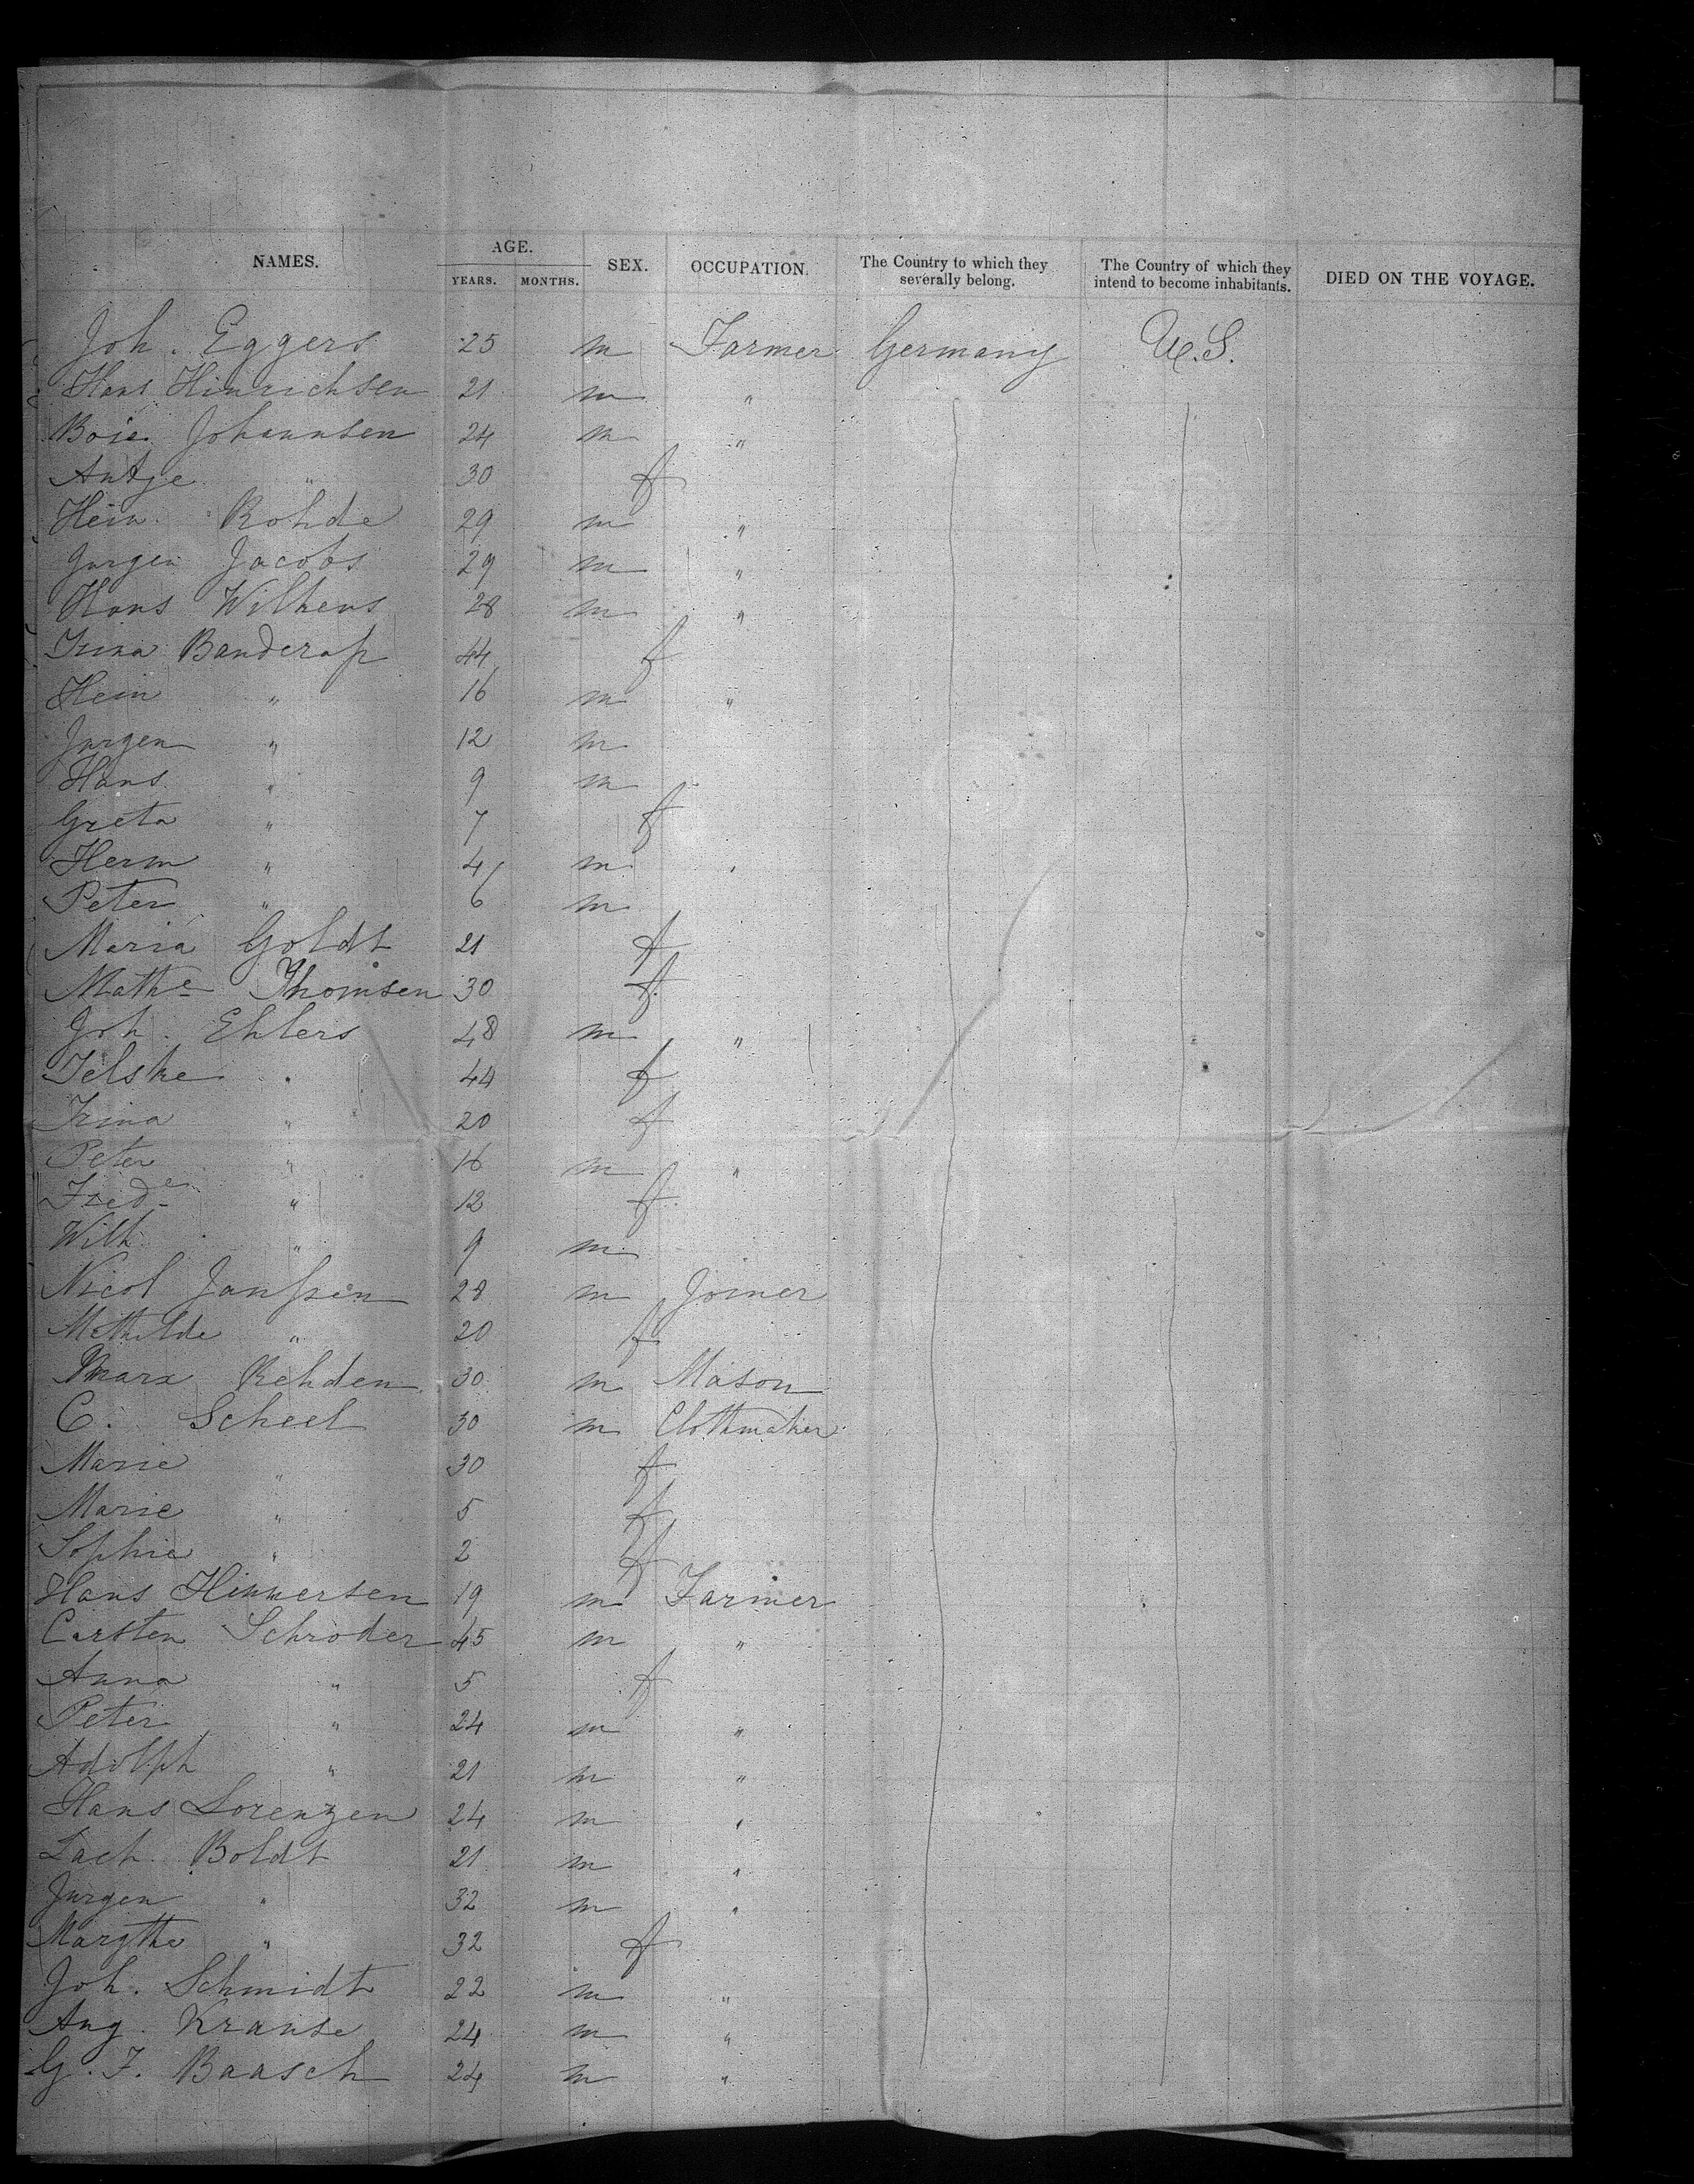 NAMES. AGE. SEX. OCCUPATION. The Country to which they severally belong. The Country of which they intend to become inhabitants. DIED ON THE VOYAGE.
YEARS. MONTHS.
Joh. Eggers 25 m Farmer Germany U.S.
Hans Hinrichsen 21 m "
Boie Johannsen 24 m "
Antje " 30 f
Hein. Rohde 29 m "
Jurgen Jacobs 29 m "
Hans Wilkens 28 m "
Trina Banderap 44 f
Hein " 16 m "
Jurgen " 12 m
Hans " 9 m
Greta " 7 f
Herm " 4 m
Peter " 6 m
Maria Goldt 21 f
Mathe Thomsen 30 f
Joh. Ehlers 48 m "
Telske " 44 f
Trina " 20 f
Peter " 16 m "
Frede " 12 f
Wilh. " 9 m
Nicol Janssen 28 m Joiner
Mathilde " 20 f
Marx Rehden 30 m Mason
C. Scheel 30 m Clothmaker
Marie " 30 f
Marie " 5 f
Sophie " 2 f
Hans Hinnersen 19 m Farmer
Carsten Schroder 45 m "
Anna " 5 f
Peter " 24 m "
Adolph " 21 m "
Hans Lorenzen 24 m "
Zach. Boldt 21 m "
Jurgen " 32 m "
Margthe " 32 f
Joh. Schmidt 22 m "
Aug. Krause 24 m "
G. F. Baasch 24 m "